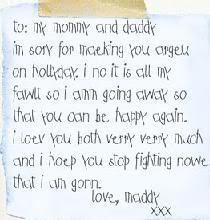 to: my mommy and daddy
im sory for maeking you argeu
on hollyday. i no it is all my
fawlt so i amm going away so
that you can be happy again.
i loev you both verry verry much
and i hoep you stop fighting nowe
that i am gonn.
love, maddy
xxx